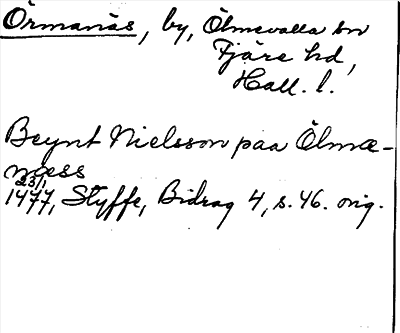 Örmanäs, by, Ölmevalla sn
Fjäre hd,
Hall. l.
Beynt Nielsson paa Ölmæ-
næss
23/1
1477, Styffe, Bidrag 4, s. 46. orig.